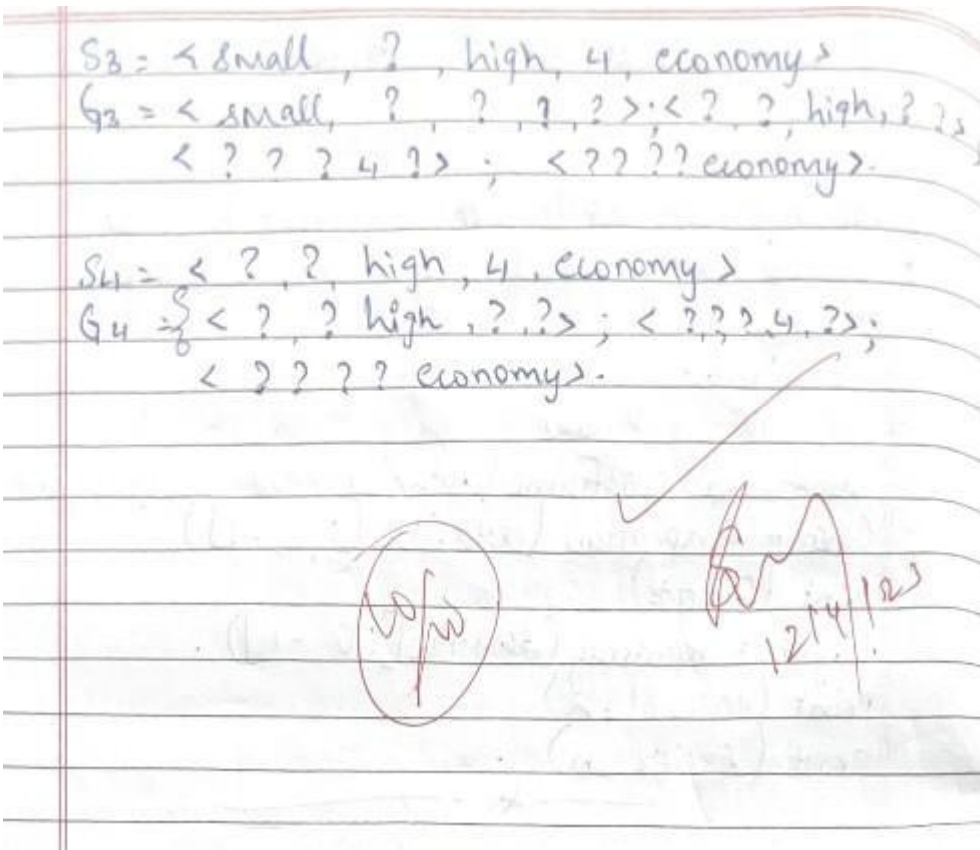 S3 = < small, ?, high, 4, economy>
G3 = < small, ?, ?, ?, ?>; < ?, ?, high, ? ?>
< ? ? ? 4 ?> ; < ? ? ? ? economy>.
S4 = < ?, ?, high, 4, economy>
G4 = { < ?, ? high, ?, ?>; < ?, ?, ?, 4, ?>;
< ? ? ? ? economy>.
10/10
12/4/23